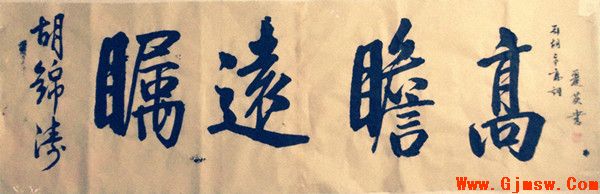 高瞻遠瞩
胡錦涛
Www.Gjmsw.Com